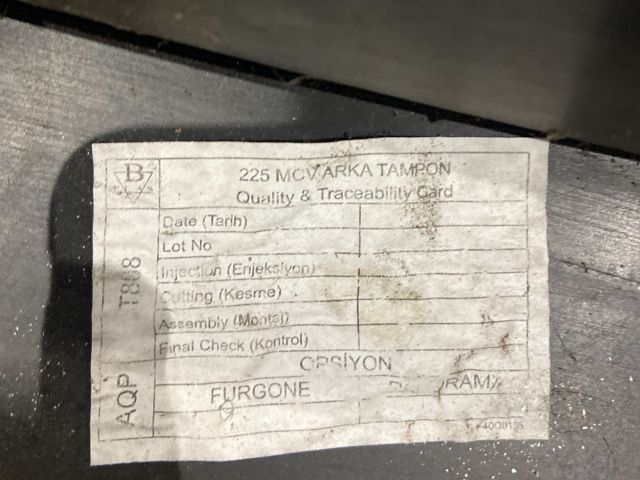 B
225 MCV ARKA TAMPON
Quality & Traceability Card
T808
Date (Tarih)
Lot No
Injection (Enjeksiyon)
Cutting (Kesme)
Assembly (Montaj)
Final Check (Kontrol)
AQP
OPSİYON
FURGONE